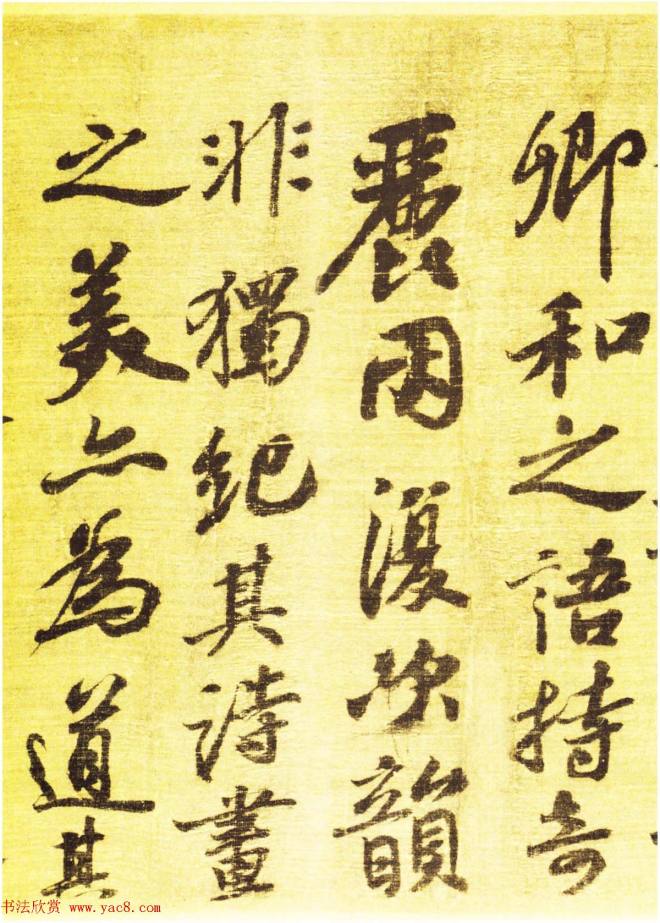 卿和之語持奇
麗因復次韻
非獨紀其詩畫
之美亦為道其
书法欣赏 www.yac8.com